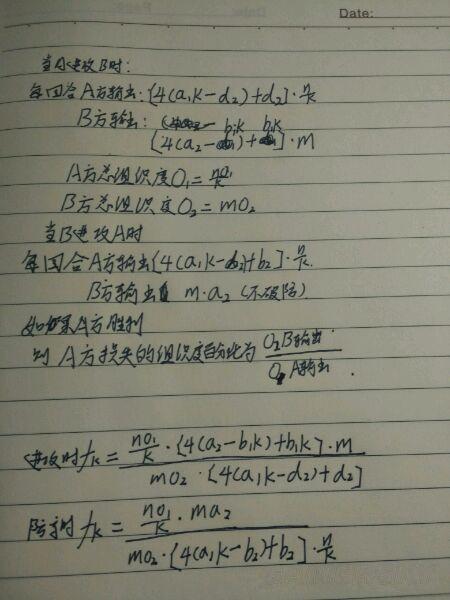 Date:
当A进攻B时:
每回合A方输出:[4(a₁k-d₂)+d₂]·n/k
B方输出: b₁k b₁k
[4(a₂- )+ ]·m
A方总组织度O₁=no₁/k
B方总组织度O₂=mo₂
当B进攻A时
每回合A方输出[4(a₁k-b₂)+b₂]·n/k
B方输出 m·a₂(不破防)
如果A方胜利
则A方损失的组织度百分比为 O₂B输出/O₁A输出.
进攻时fₖ= no₁/k·[4(a₂-b₁k)+b₁k]·m / mo₂·[4(a₁k-d₂)+d₂]
防守时fₖ= no₁/k·ma₂ / mo₂·[4(a₁k-b₂)+b₂]·n/k